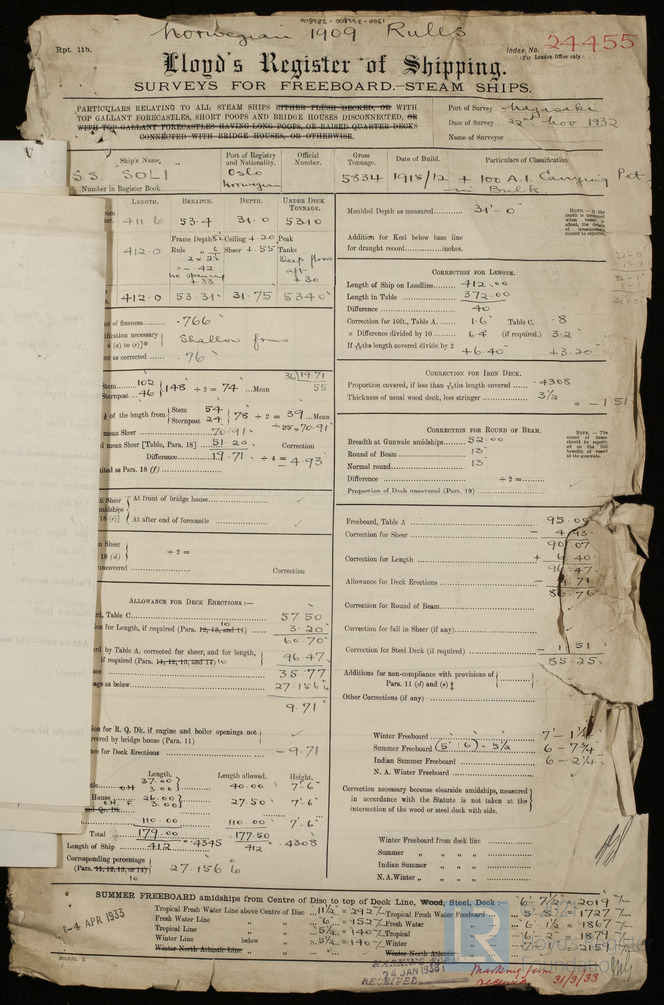 008982-008992-0051
Norwegian 1909 Rules
Rpt. 11b.
Index No. 24455
(For London Office only.)
Lloyd's Register of Shipping.
SURVEYS FOR FREEBOARD.—STEAM SHIPS.
PARTICULARS RELATING TO ALL STEAM SHIPS EITHER FLUSH DECKED, OR WITH
TOP GALLANT FORECASTLES, SHORT POOPS AND BRIDGE HOUSES DISCONNECTED, OR
WITH TOP GALLANT FORECASTLES HAVING LONG POOPS, OR RAISED QUARTER DECKS
CONNECTED WITH BRIDGE HOUSES, OR OTHERWISE.
Port of Survey Nagasaki
Date of Survey 22nd Nov 1932
Name of Surveyor
Ship's Name,
S.S. SOLI
Number in Register Book
Port of Registry and Nationality.
Oslo
Norwegian
Official Number.
Gross Tonnage.
5834
Date of Build.
1915/12
Particulars of Classification.
+ 100 A.1. Carrying Pet
in Bulk
LENGTH. BREADTH. DEPTH. UNDER DECK TONNAGE.
411.6 53.4 31.0 5310
412.0 Frame Depth Ceiling + 20 Peak
Rule Sheer + .55 Tanks
= - .42 Deep floors
no opening aft
+33 +30
412.0 53.31 31.75 5340
of fineness .766
Shallow frms
as corrected .76
Stem 102
Sternpost 46 148 ÷ 2 = 74 Mean
36 19.71
55
of the length from Stem 54
Sternpost 24 78 ÷ 2 = 39 Mean
+ 55 = 70.91
mean Sheer 70.91
mean Sheer [Table, Para. 18] 51.20 Correction
Difference 19.71 ÷ 4 = - 4.93
ited as Para. 18 (f)
Sheer
midships
18 (e)] At front of bridge house
At after end of forecastle
Sheer
18 (d) ÷ 2 =
uncovered Correction
ALLOWANCE FOR DECK ERECTIONS :—
rd, Table C 57.50
on for Length, if required (Para. 12, 13, and 14) 10 3.20
60.70
rd by Table A. corrected for sheer, and for length,
if required (Para. 11, 12, 13, and 14) 10 96.47
35.77
age as below 27.156%
9.71
ion for R. Q. Dk. if engine and boiler openings not
overed by bridge house (Para. 11)
nce for Deck Erections - 9.71
Length. Length allowed. Height.
37.00
O.H 3.00 40.00 7'-6"
House 26.00
O.H. F 3.00 27.50 7'-6"
ed Qr. Dk
110.00 110.00 7'-6"
Total 179.00 177.50
Length of Ship 412 = .4345 412 = .4308
Corresponding percentage
(Para. 11, 12, 13, or 14) 27.156%
10
Moulded Depth as measured 31'-0"
NOTE.—If the depth is measured when vessel is afloat, the details of measurement should be reported.
Addition for Keel below base line
for draught record inches.
CORRECTION FOR LENGTH.
Length of Ship on Loadline 412.00
Length in Table 372.00
Difference 40
Correction for 10ft., Table A. 1.6 Table C. .8
× Difference divided by 10 6.4 (if required.) 3.2
If 6/10ths length covered divide by 2
+6.40 +3.20
CORRECTION FOR IRON DECK.
Proportion covered, if less than 7/10ths length covered .4308
Thickness of usual wood deck, less stringer 3½
= -1.51
CORRECTION FOR ROUND OF BEAM.
Breadth at Gunwale amidships 52.00
Round of Beam 13
Normal round 13
Difference ÷ 2 =
Proportion of Deck uncovered (Para. 19)
NOTE.—The round of beam should be reported on the full breadth of vessel at the gunwale.
Freeboard, Table A 95.00
Correction for Sheer - 4.93
90.07
Correction for Length + 6.40
96.47
Allowance for Deck Erections - 9.71
86.76
Correction for Round of Beam
Correction for fall in Sheer (if any)
Correction for Steel Deck (if required) - 1.51
85.25
Additions for non-compliance with provisions of
Para. 11 (d) and (e)‡
Other Corrections (if any)
Winter Freeboard 7'-1¼
Summer Freeboard (5".6) = 5½ 6-7¾
Indian Summer Freeboard 6-2¼
N. A. Winter Freeboard
Correction necessary because clearside amidships, measured
in accordance with the Statute is not taken at the
intersection of the wood or steel deck with side.
Winter Freeboard from deck line
Summer „ „ „ „
Indian Summer „ „ „ „
N.A. Winter „ „ „ „
SUMMER FREEBOARD amidships from Centre of Disc to top of Deck Line, Wood, Steel, Deck :— 6-7½ = 2019
Tropical Fresh Water Line above Centre of Disc 11½ = 292 Tropical Fresh Water Freeboard 5-8 = 1727
Fresh Water Line „ „ 6 = 152 Fresh Water „ 6-1½ = 1867
Tropical Line „ „ 5½ = 140 Tropical „ 6-2 = 1879
Winter Line below „ „ 5½ = 140 Winter „ 7-1 = 2159
Winter North Atlantic Line „ „ Winter North Atlantic „
-4 APR 1933
24 JAN 1933
RECEIVED
Marking form
31/3/33